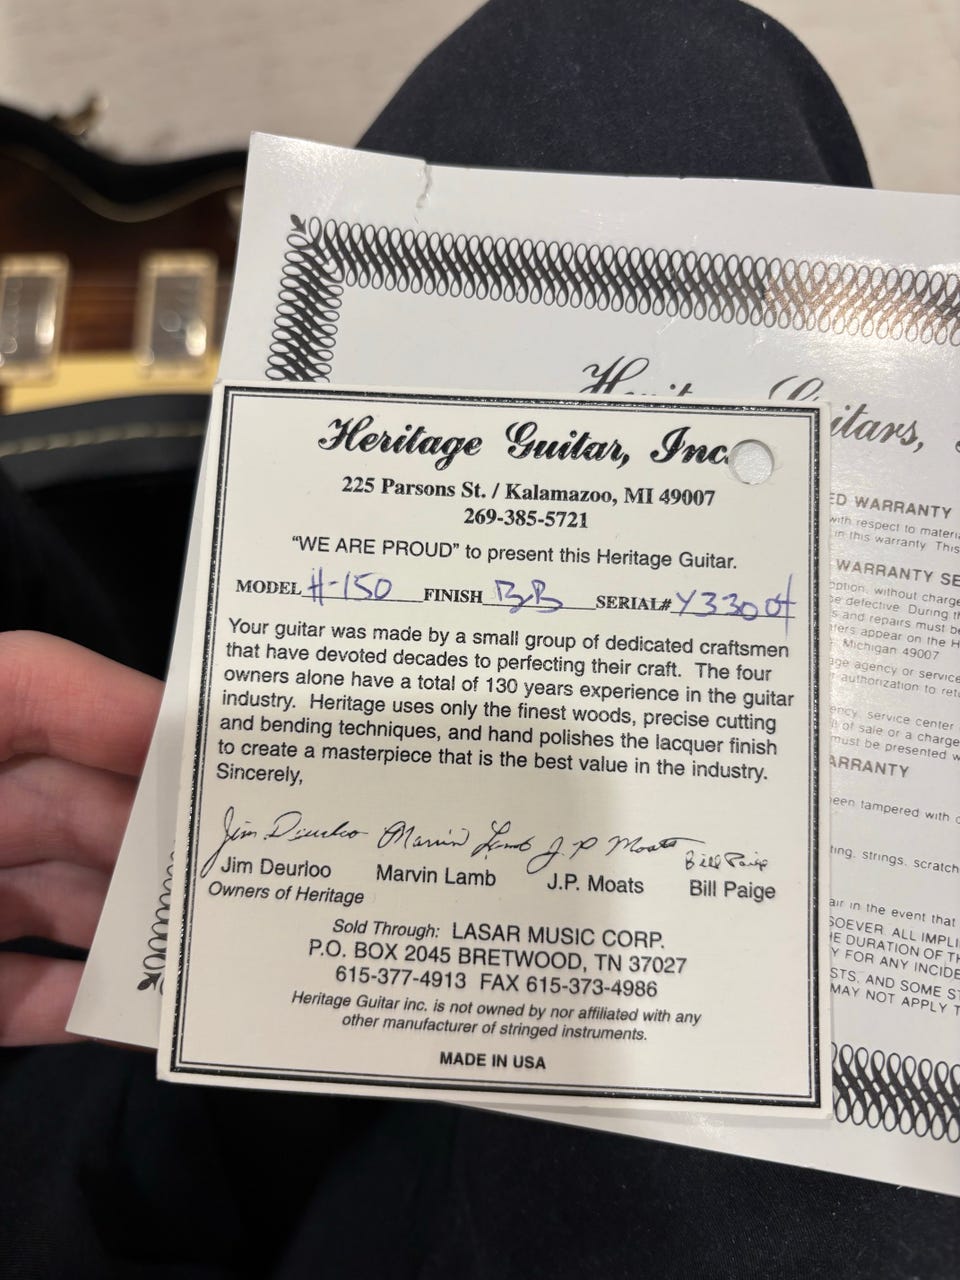 Heritage Guitar, Inc.
225 Parsons St. / Kalamazoo, MI 49007
269-385-5721
"WE ARE PROUD" to present this Heritage Guitar.
MODEL H-150 FINISH BB SERIAL# Y33004
Your guitar was made by a small group of dedicated craftsmen
that have devoted decades to perfecting their craft. The four
owners alone have a total of 130 years experience in the guitar
industry. Heritage uses only the finest woods, precise cutting
and bending techniques, and hand polishes the lacquer finish
to create a masterpiece that is the best value in the industry.
Sincerely,
Jim Deurloo Marvin Lamb J.P Moats Bill Paige
Jim Deurloo Marvin Lamb J.P. Moats Bill Paige
Owners of Heritage
Sold Through: LASAR MUSIC CORP.
P.O. BOX 2045 BRETWOOD, TN 37027
615-377-4913 FAX 615-373-4986
Heritage Guitar inc. is not owned by nor affiliated with any
other manufacturer of stringed instruments.
MADE IN USA
itars,
WARRANTY
with respect to
in this warranty. This
WARRANTY
without charge
defective. During
and repairs must be
appear on the
Michigan 49007
agency or service
authorization to
service center
of sale or a charge
must be presented
ARRANTY
been tampered with
strings, scratch
in the event that
ALL
DURATION OF
FOR ANY
AND SOME
MAY NOT APPLY